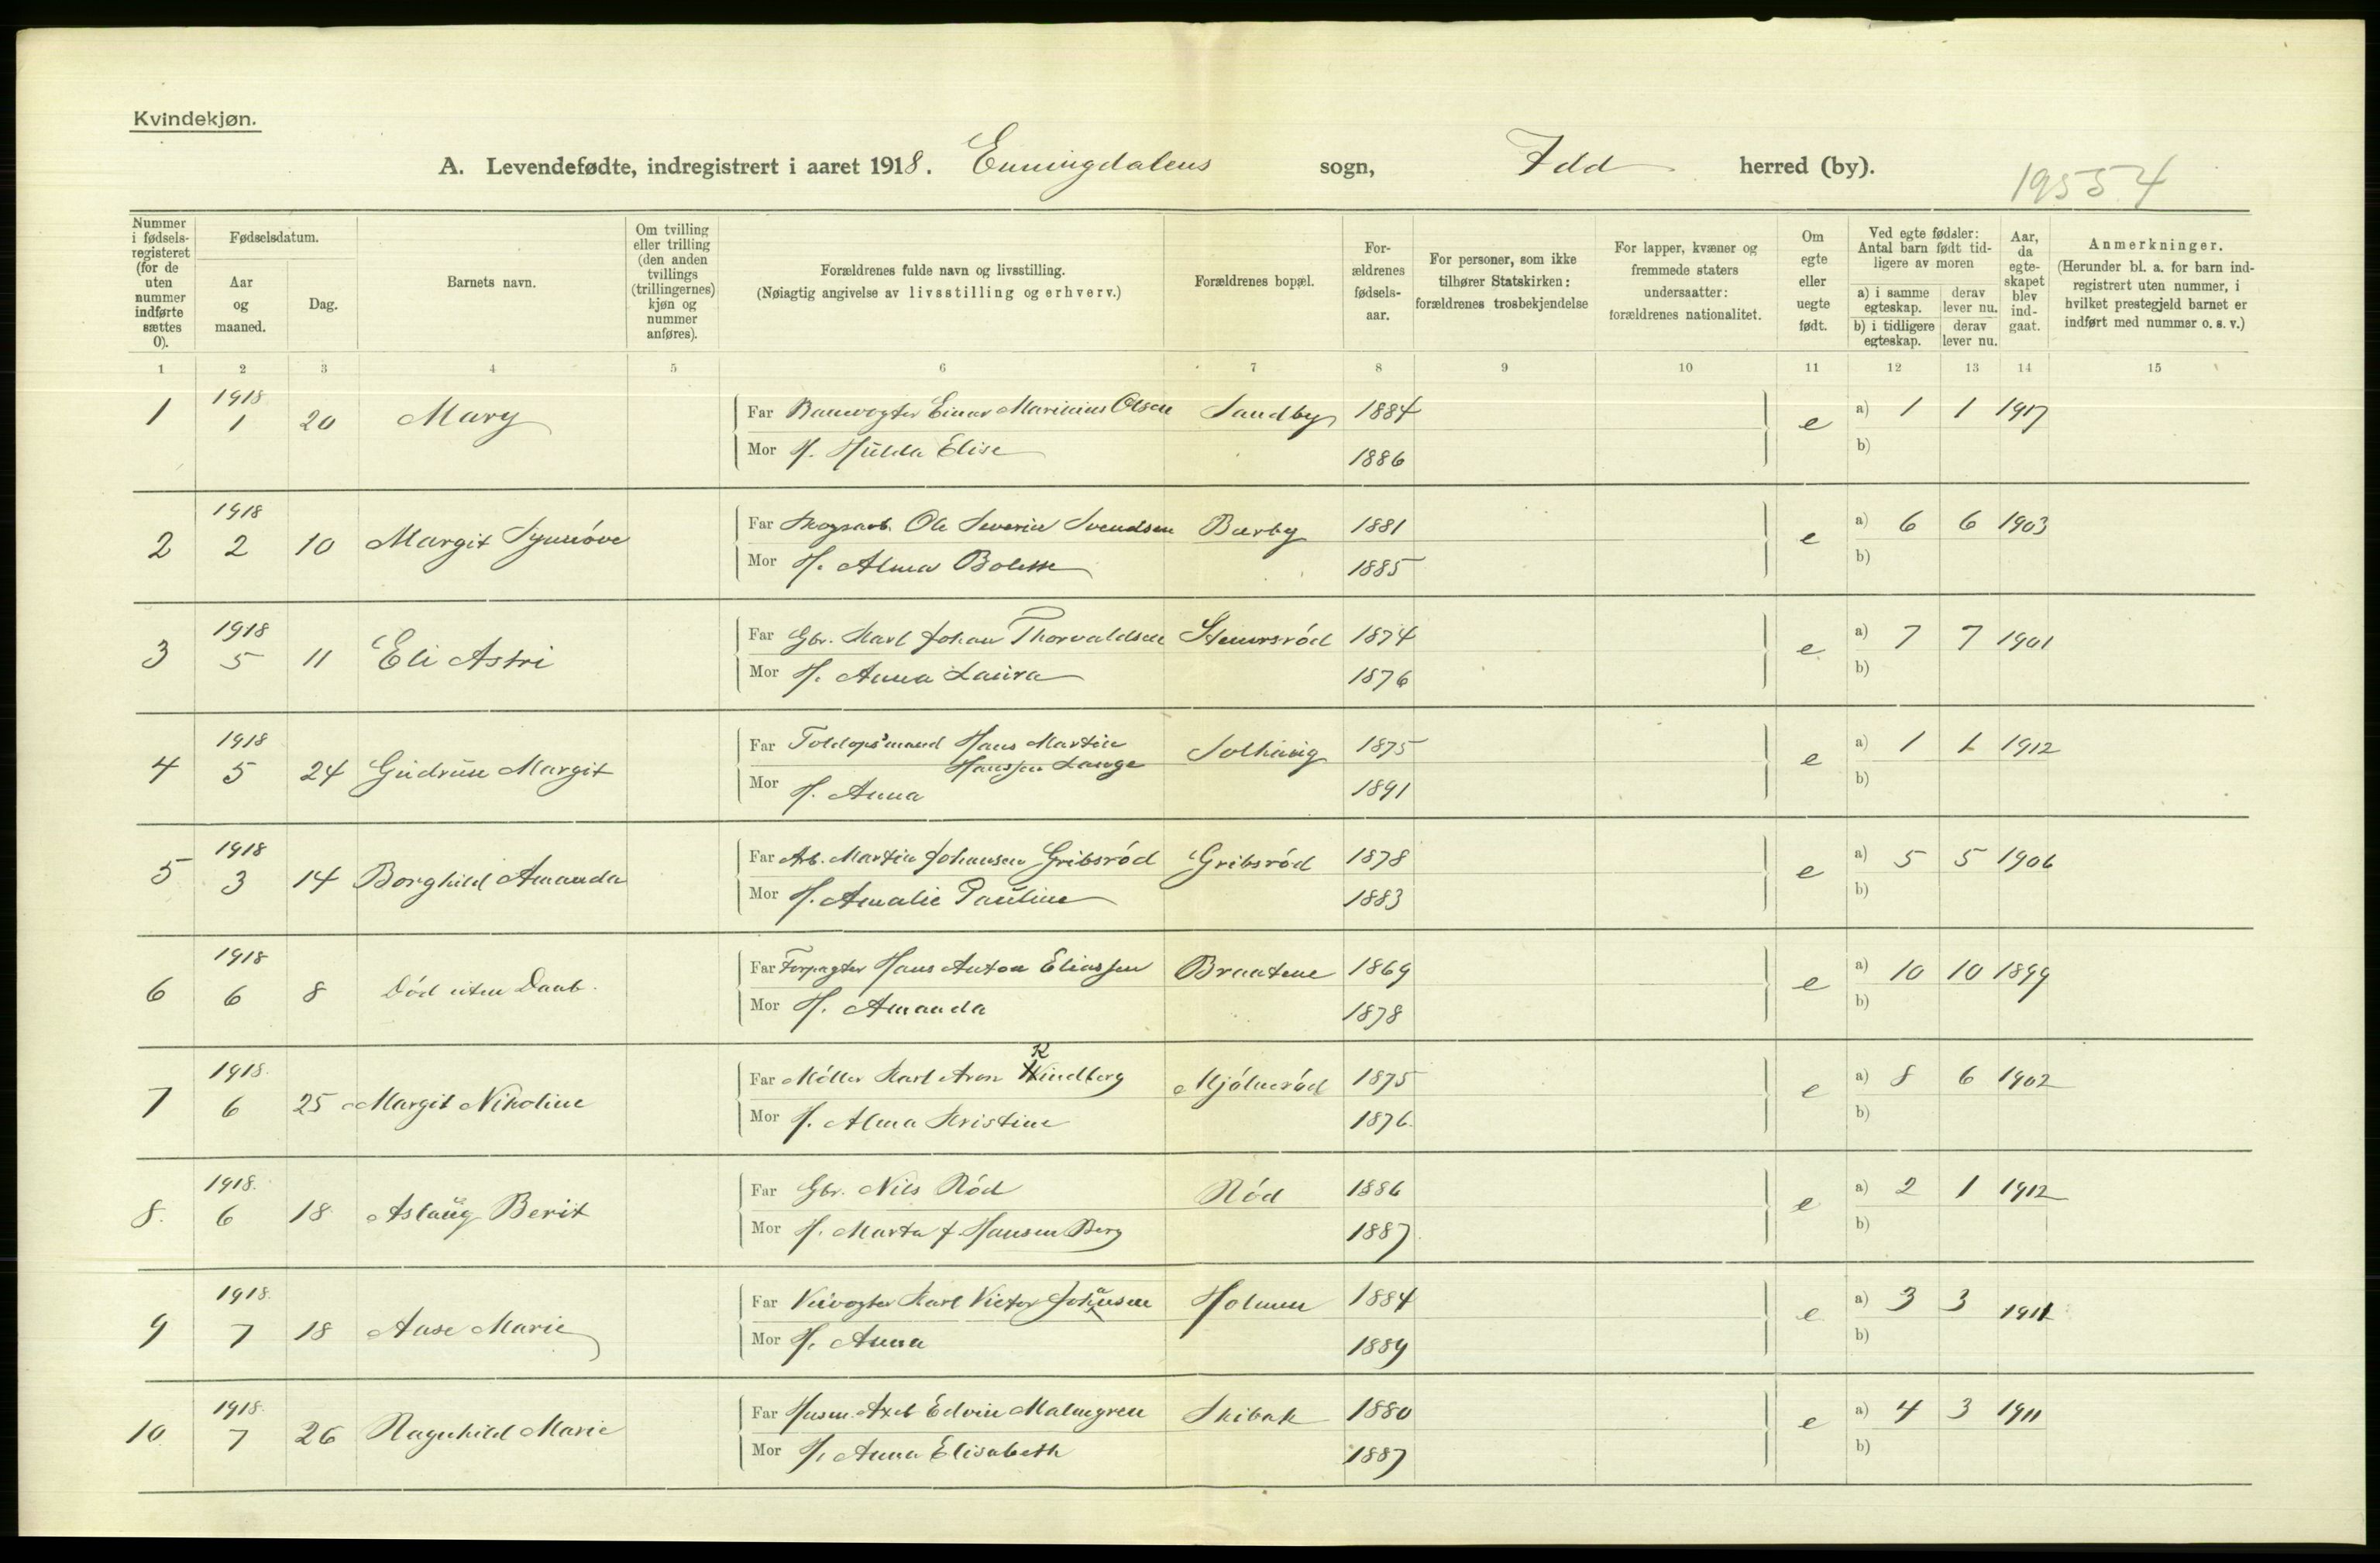 Kvindekjøn.
A. Levendefødte, indregistrert i aaret 1918. Enningdalens sogn, Idd herred (by).
19554
Nummer i fødselsregisteret (for de uten nummer indførte sættes 0).
Fødselsdatum.
Aar og maaned.
Dag.
Barnets navn.
Om tvilling eller trilling (den anden tvillings (trillingernes) kjøn og nummer anføres).
Forældrenes fulde navn og livsstilling.
(Nøiagtig angivelse av livsstilling og erhverv.)
Forældrenes bopæl.
Forældrenes fødselsaar.
For personer, som ikke tilhører Statskirken: forældrenes trosbekjendelse
For lapper, kvæner og fremmede staters undersaatter: forældrenes nationalitet.
Om egte eller uegte født.
Ved egte fødsler: Antal barn født tidligere av moren
a) i samme egteskap. derav lever nu.
b) i tidligere egteskap. derav lever nu.
Aar, da egteskapet blev indgaat.
Anmerkninger.
(Herunder bl. a. for barn indregistrert uten nummer, i hvilket prestegjeld barnet er indført med nummer o. s. v.)
1 2 3 4 5 6 7 8 9 10 11 12 13 14 15
1 1918 1 20 Mary Far Banevogter Einar Marinius Olsen Sandby 1884 e a) 1 1 1917
Mor H. Hulda Elise 1886 b)
2 1918 2 10 Margit Synnöve Far Skogsarb. Ole Severin Svendsen Bærby 1881 e a) 6 6 1903
Mor H. Alma Bolette 1885 b)
3 1918 5 11 Eli Astri Far Gbr. Karl Johan Thorvaldsen 1874 e a) 7 7 1901
Mor H. Anna Laura 1876 b)
4 1918 5 24 Gudrun Margit Far Toldops'mand Hans Martin Hanssen Lange 1875 e a) 1 1 1912
Mor H. Anna 1891 b)
5 1918 3 14 Borghild Amanda Far Arb. Martin Johansen Gribsröd Gribsröd 1878 e a) 5 5 1906
Mor H. Amalie Pauline 1883 b)
6 1918 6 8 Död uten Daab. Far Forpagter Hans Anton Eliassen Braatene 1869 e a) 10 10 1899
Mor H. Amanda 1878 b)
7 1918. 6 25 Margit Nikoline Far Möller Karl Aron Kindberg Mjölneröd 1875 e a) 8 6 1902
Mor H. Alma Kristine 1876. b)
8. 1918. 6 18 Aslaug Berit Far Gbr. Nils Röd Röd 1886 e a) 2 1 1912
Mor H. Marta f. Hansen Berg 1887 b)
9 1918. 7 18 Aase Marie Far Veivogter Karl Victor Johansen Holmen 1884 e a) 3 3 1911
Mor H. Anna 1889 b)
10 1918. 7 26 Ragnhild Marie Far Husm. Axel Edvin Malmgren Skibak 1880 e a) 4 3 1911
Mor H. Anna Elisabeth 1887 b)